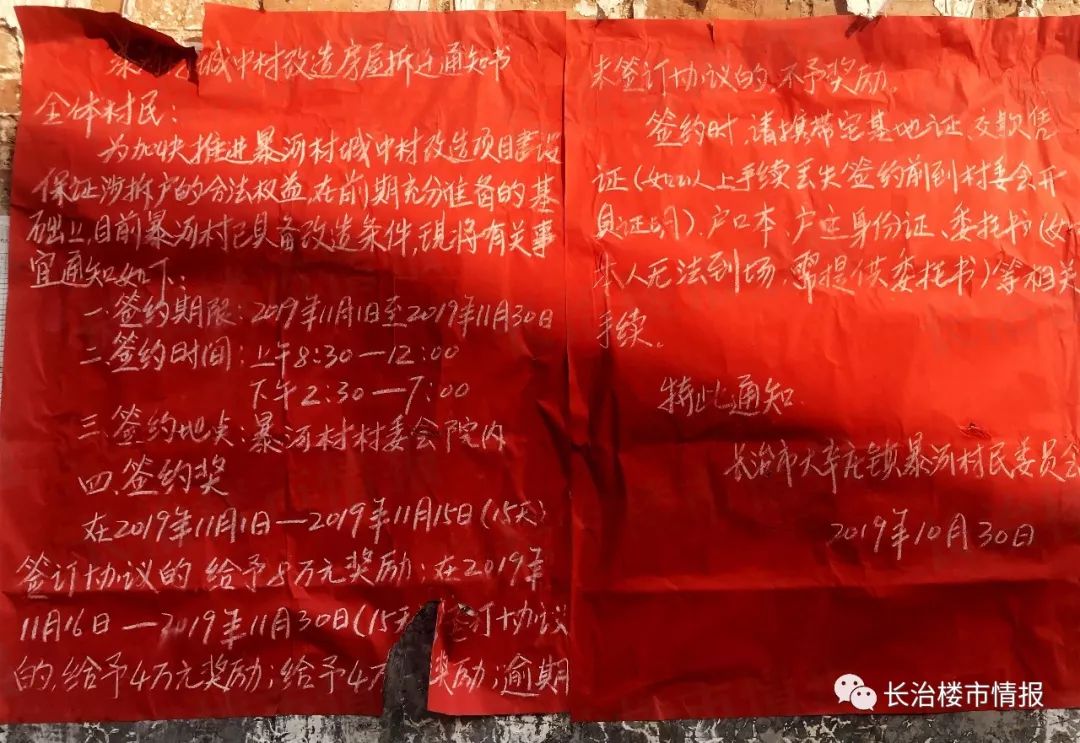 城中村改造房屋拆迁通知书
全体村民：
为加快推进暴河村城中村改造项目建设
保证涉拆户的合法权益，在前期充分准备的基
础上，目前暴河村已具备改造条件，现将有关事
宜通知如下：
一.签约期限：2019年11月1日至2019年11月30日
二.签约时间：上午8:30—12:00
下午2:30—7:00
三.签约地点：暴河村村委会院内
四.签约奖
在2019年11月1日—2019年11月15日(15天)
签订协议的 给予8万元奖励；在2019年
11月16日—2019年11月30日(15天 签订协议
的，给予4万元奖励；给予4万 奖励；逾期
未签订协议的，不予奖励。
签约时，请携带宅基地证、交款售
证(如以上手续丢失签约前到村委会开
具证明)、户口本、户主身份证、委托书(如
本人无法到场，需提供委托书)等相关
手续。
特此通知
长治市大辛庄镇暴河村民委员会
2019年10月30日
长治楼市情报